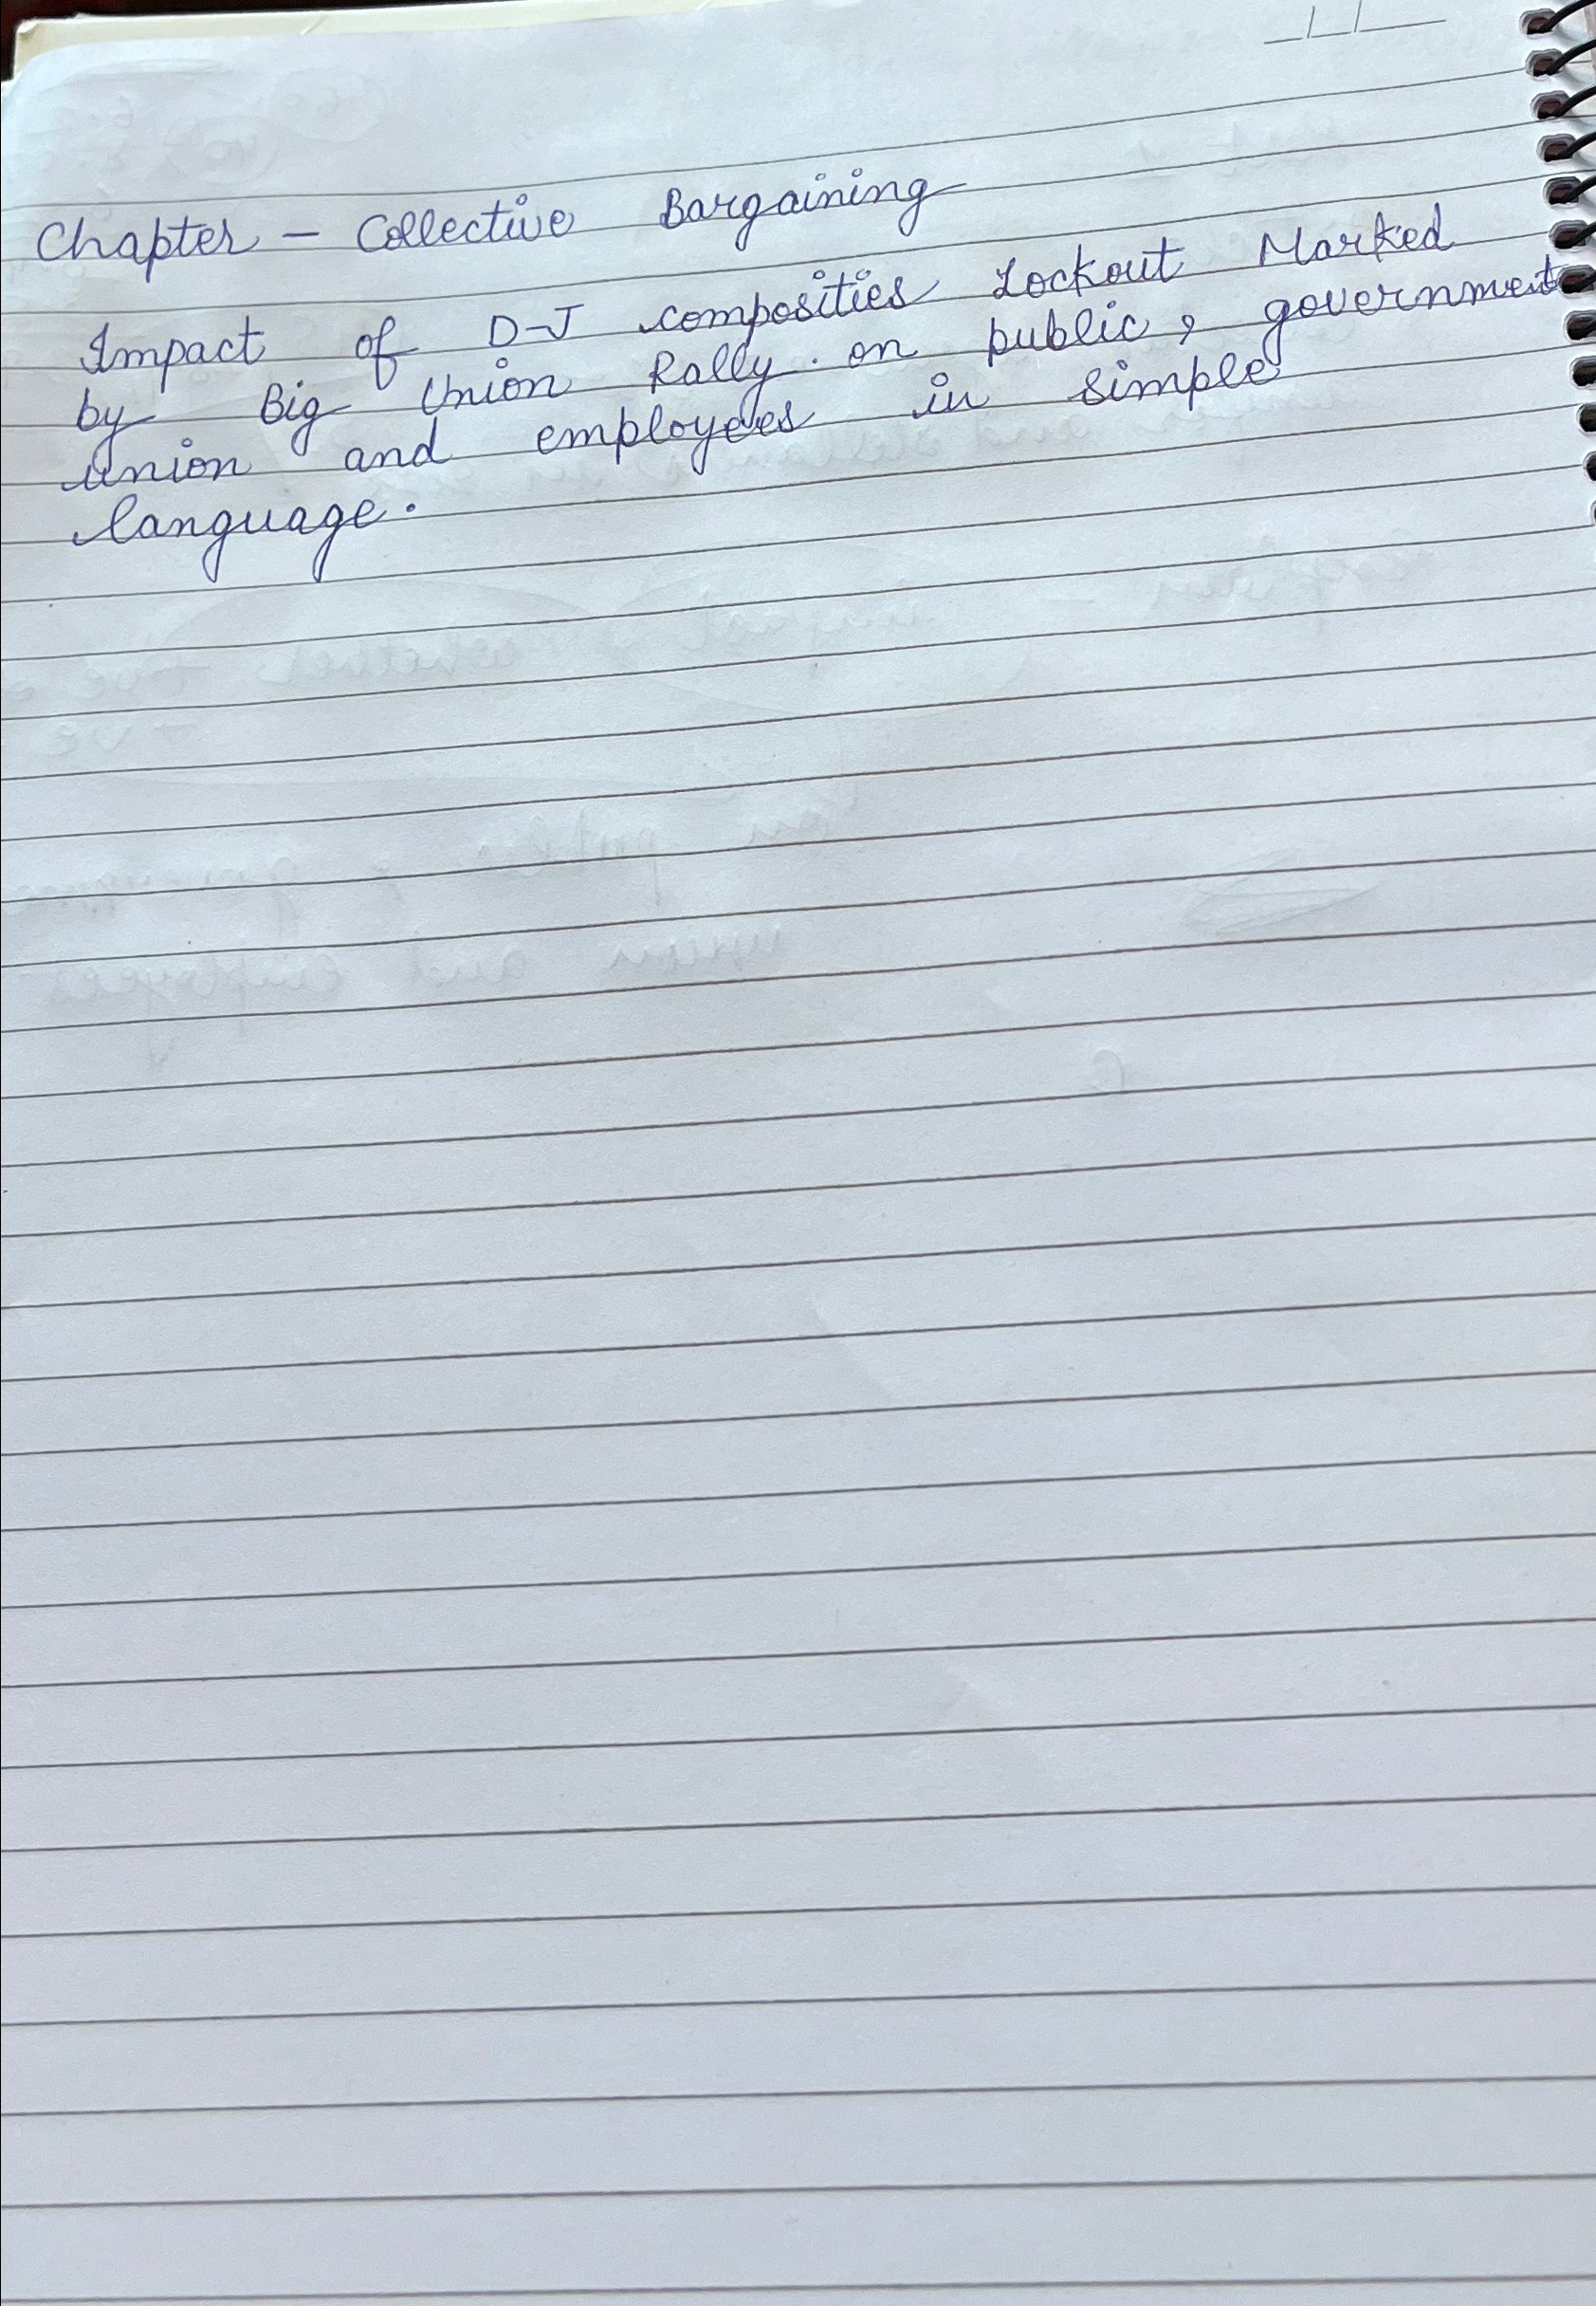 Chapter - Collective Bargaining
Impact of D-J composities Lockout Marked
by Big Union Rally. on public, government
union and employees in simple
language.